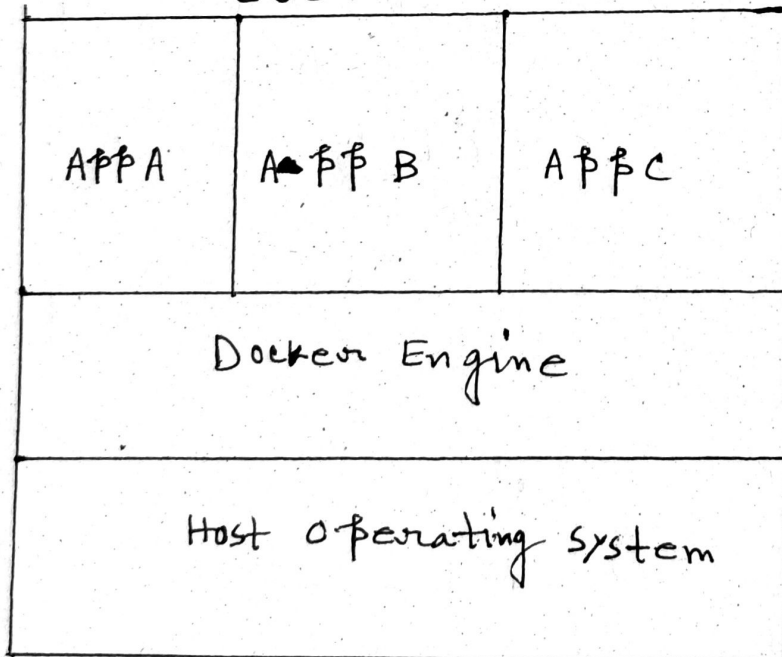 App A
App B
App C
Docker Engine
Host operating system